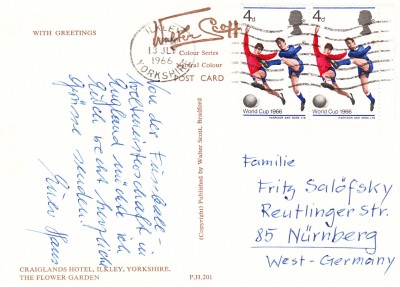 WITH GREETINGS
Walter Scott
Colour Series
Natural Colour
POST CARD
ILKLEY
13 JLY
1966
YORKSHIRE
4d
World Cup 1966
HARRISON AND SONS LTD
4d
World Cup 1966
HARRISON AND SONS LTD
Von der Fussball-
weltmeisterschaft in
England möchte ich
Euch recht herzliche
Grüsse senden!
Euer Hans
(Copyright) Published by Walter Scott, Bradford
Familie
Fritz Salófsky
Reutlinger Str.
85 Nürnberg
West-Germany
CRAIGLANDS HOTEL, ILKLEY, YORKSHIRE.
THE FLOWER GARDEN
P.H.201